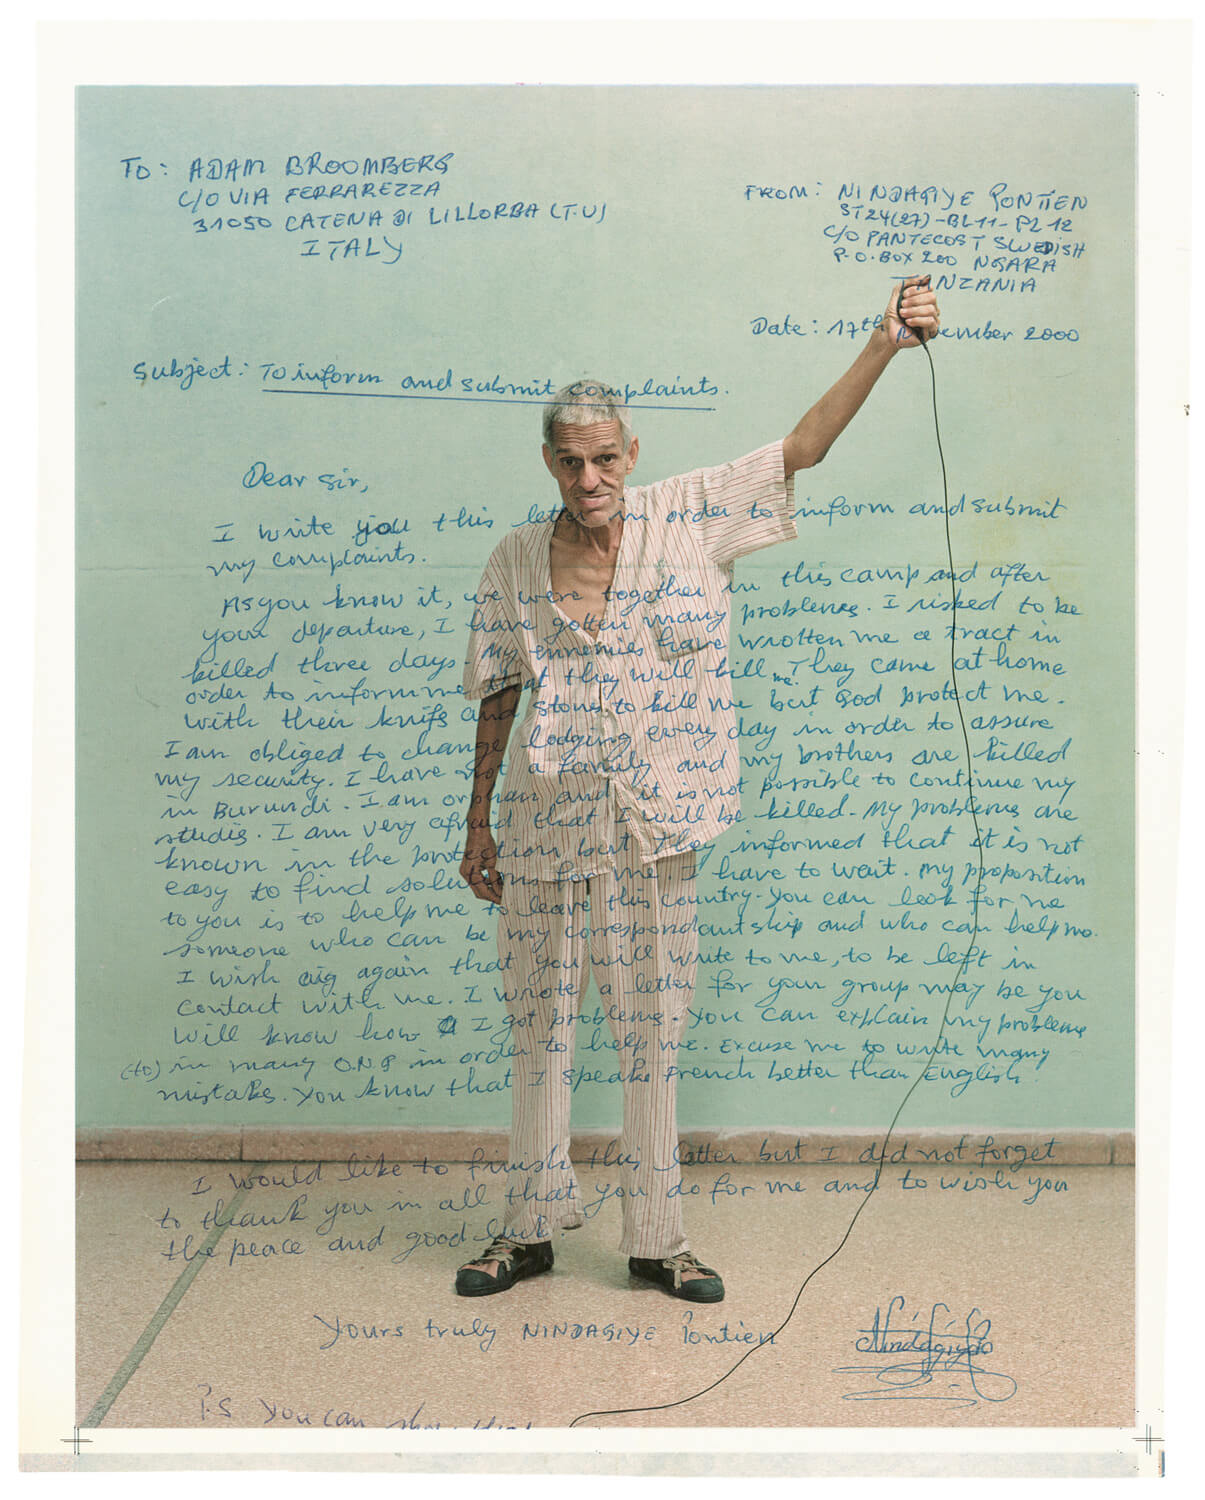 TO: ADAM BROOMBERG
C/O VIA FERRAREZZA
31050 CATENA DI LILLORBA (T.V)
ITALY
FROM: NINDAGIYE PONTIEN
ST24(27)-BL11-PL12
C/O PANTECOST SWEDISH
P.O.BOX 200 NGARA
TANZANIA
Date: 17th November 2000
Subject: To inform and submit complaints.
Dear Sir,
I write you this letter in order to inform and submit
my complaints.
As you know it, we were together in this camp and after
your departure, I have gotten many problems. I risked to be
killed three days. My ennemies have wrotten me a tract in
order to inform me that they will kill me. They came at home
with their knifs and stones to kill me but God protect me.
I am obliged to change lodging every day in order to assure
my security. I have not a family and my brothers are killed
in Burundi. I am orphan and it is not possible to continue my
studis. I am very afraid that I will be killed. My problems are
known in the protection but they informed that it is not
easy to find solutions for me. I have to wait. My proposition
to you is to help me to leave this country. You can look for me
someone who can be my correspondantship and who can help me.
I wish aig again that you will write to me, to be left in
contact with me. I wrote a letter for your group may be you
will know how I got problems. You can explain my problems
(to) in many O.N.G in order to help me. Excuse me to write many
mistakes. You know that I speake French better than English.
I would like to finish this letter but I did not forget
to thank you in all that you do for me and to wish you
the peace and good luck.
Yours truly NINDAGIYE Pontien
P.S You can show this